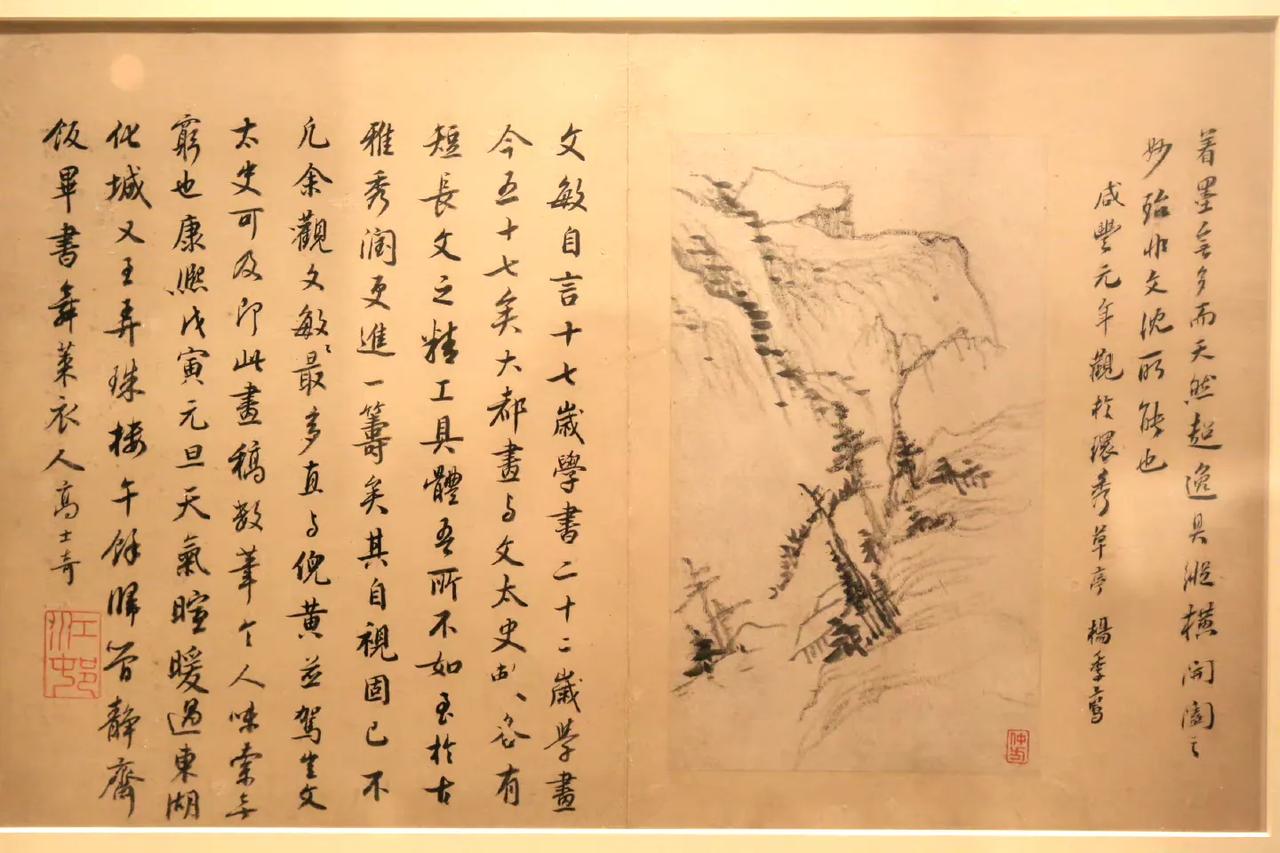 着墨無多而天然超逸具縱橫開闔之
妙殆非文沈所能也
咸豐元年觀於環秀草亭 楊季鸞
仲
文敏自言十七歲學書二十二歲學畫
今五十七矣大都畫与文太史各有
短長文之精工具體吾所不如至於古
雅秀潤更進一籌矣其自視固已不
凡余觀文敏畫最多直与倪黃並駕豈文
太史可及即此畫稿數筆令人味索無
窮也康熙戊寅元旦天氣暄暖過東湖
化城又至弄珠樓午餘歸簡靜齋
飯畢書舞萊衣人高士奇
江邨